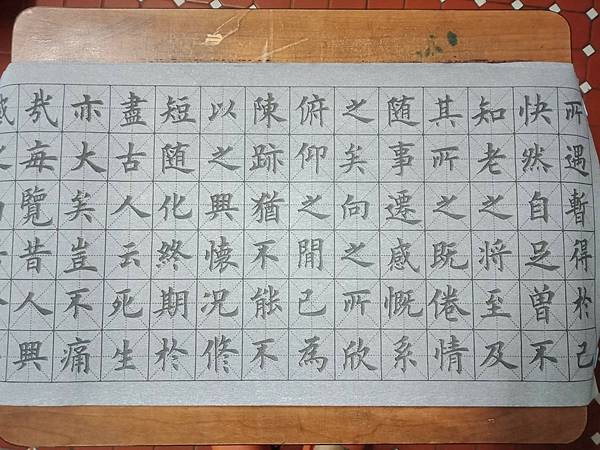 所遇暫得於己
快然自足曾不
知老之將至及
其所之既倦情
随事遷感慨系
之矣向之所欣
俯仰之閒已為
陳跡猶不能不
以之興懷况脩
短随化終期於
盡古人云死生
亦大矣豈不痛
哉每覽昔人興